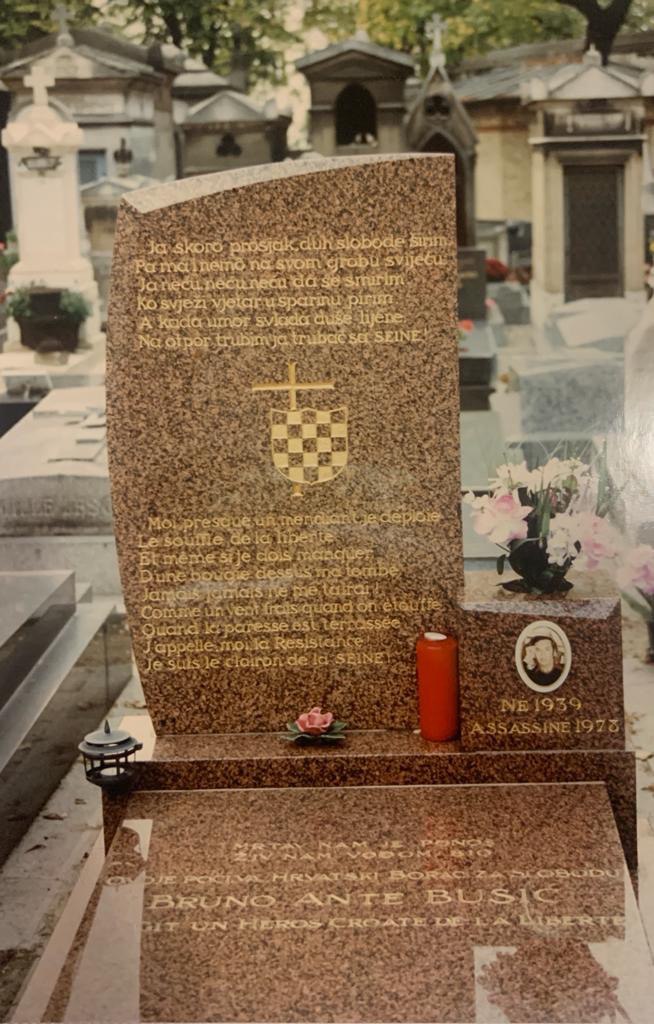 Ja skoro prosjak duh slobode širim
Pa ma i nemo na svom grobu svijeću
Ja neću, neću, neću da se smirim
Ko svjezi vjetar u sparinu pirim
A kada umor svlada duše lijene
Na otpor trubim ja trubač sa SEINE!
Moi, presque un mendiant, je deploie
Le souffle de la liberte
Et même si je dois manquer
D'une bougie dessus ma tombe
Jamais jamais ne me tairai
Comme un vent frais quand on etouffe
Quand la paresse est terrassée
J'appelle, moi la Resistance
Je suis le clairon de la SEINE!
NE 1939
ASSASSINE 1978
MRTAV NAM JE PONOS
ŽIV NAM VODOM BIO
POČIVA HRVATSKI BORAC ZA SLOBODU
BRUNO ANTE BUSIC
GIT UN HEROS CROATE DE LA LIBERTE